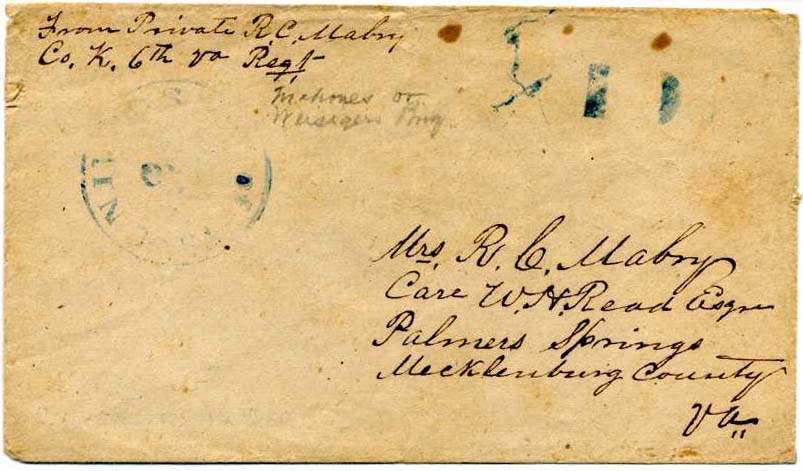 From Private R.C. Mabry
Co. K. 6th va Regt
Mahones or
Weisigers Brig.
Mrs. R. C. Mabry
Care W. H. Read Esqr
Palmers Springs
Mecklenburg County
Va